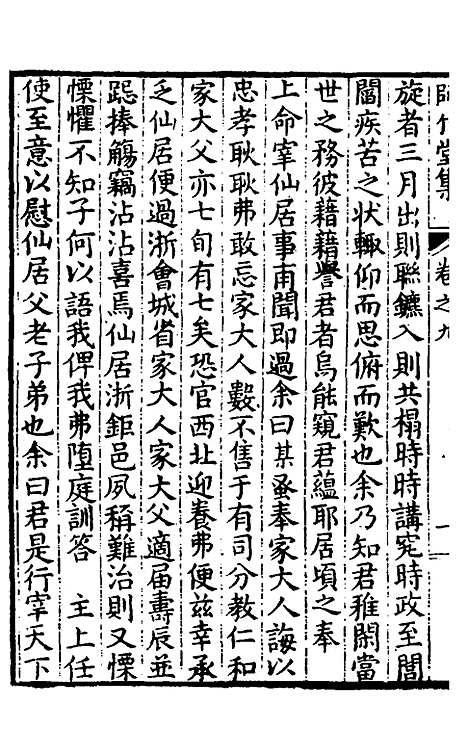 師竹堂集 卷之九
旋者三月出則聯鑣入則共榻時時講究時政至閭
閻疾苦之狀輒仰而思俯而歎也余乃知君雅閑當
世之務彼藉藉譽君者烏能窺君蘊耶居頃之奉
上命宰仙居事甫聞即過余曰某蚤奉家大人誨以
忠孝耿耿弗敢忘家大人數不售于有司分教仁和
家大父亦七旬有七矣恐官西北迎養弗便茲幸承
乏仙居便過浙會城省家大人家大父適屆壽辰並
跽捧觴竊沾沾喜焉仙居浙鉅邑夙稱難治則又慄
慄懼不知子何以語我俾我弗墮庭訓答 主上任
使至意以慰仙居父老子弟也余曰君是行宰天下